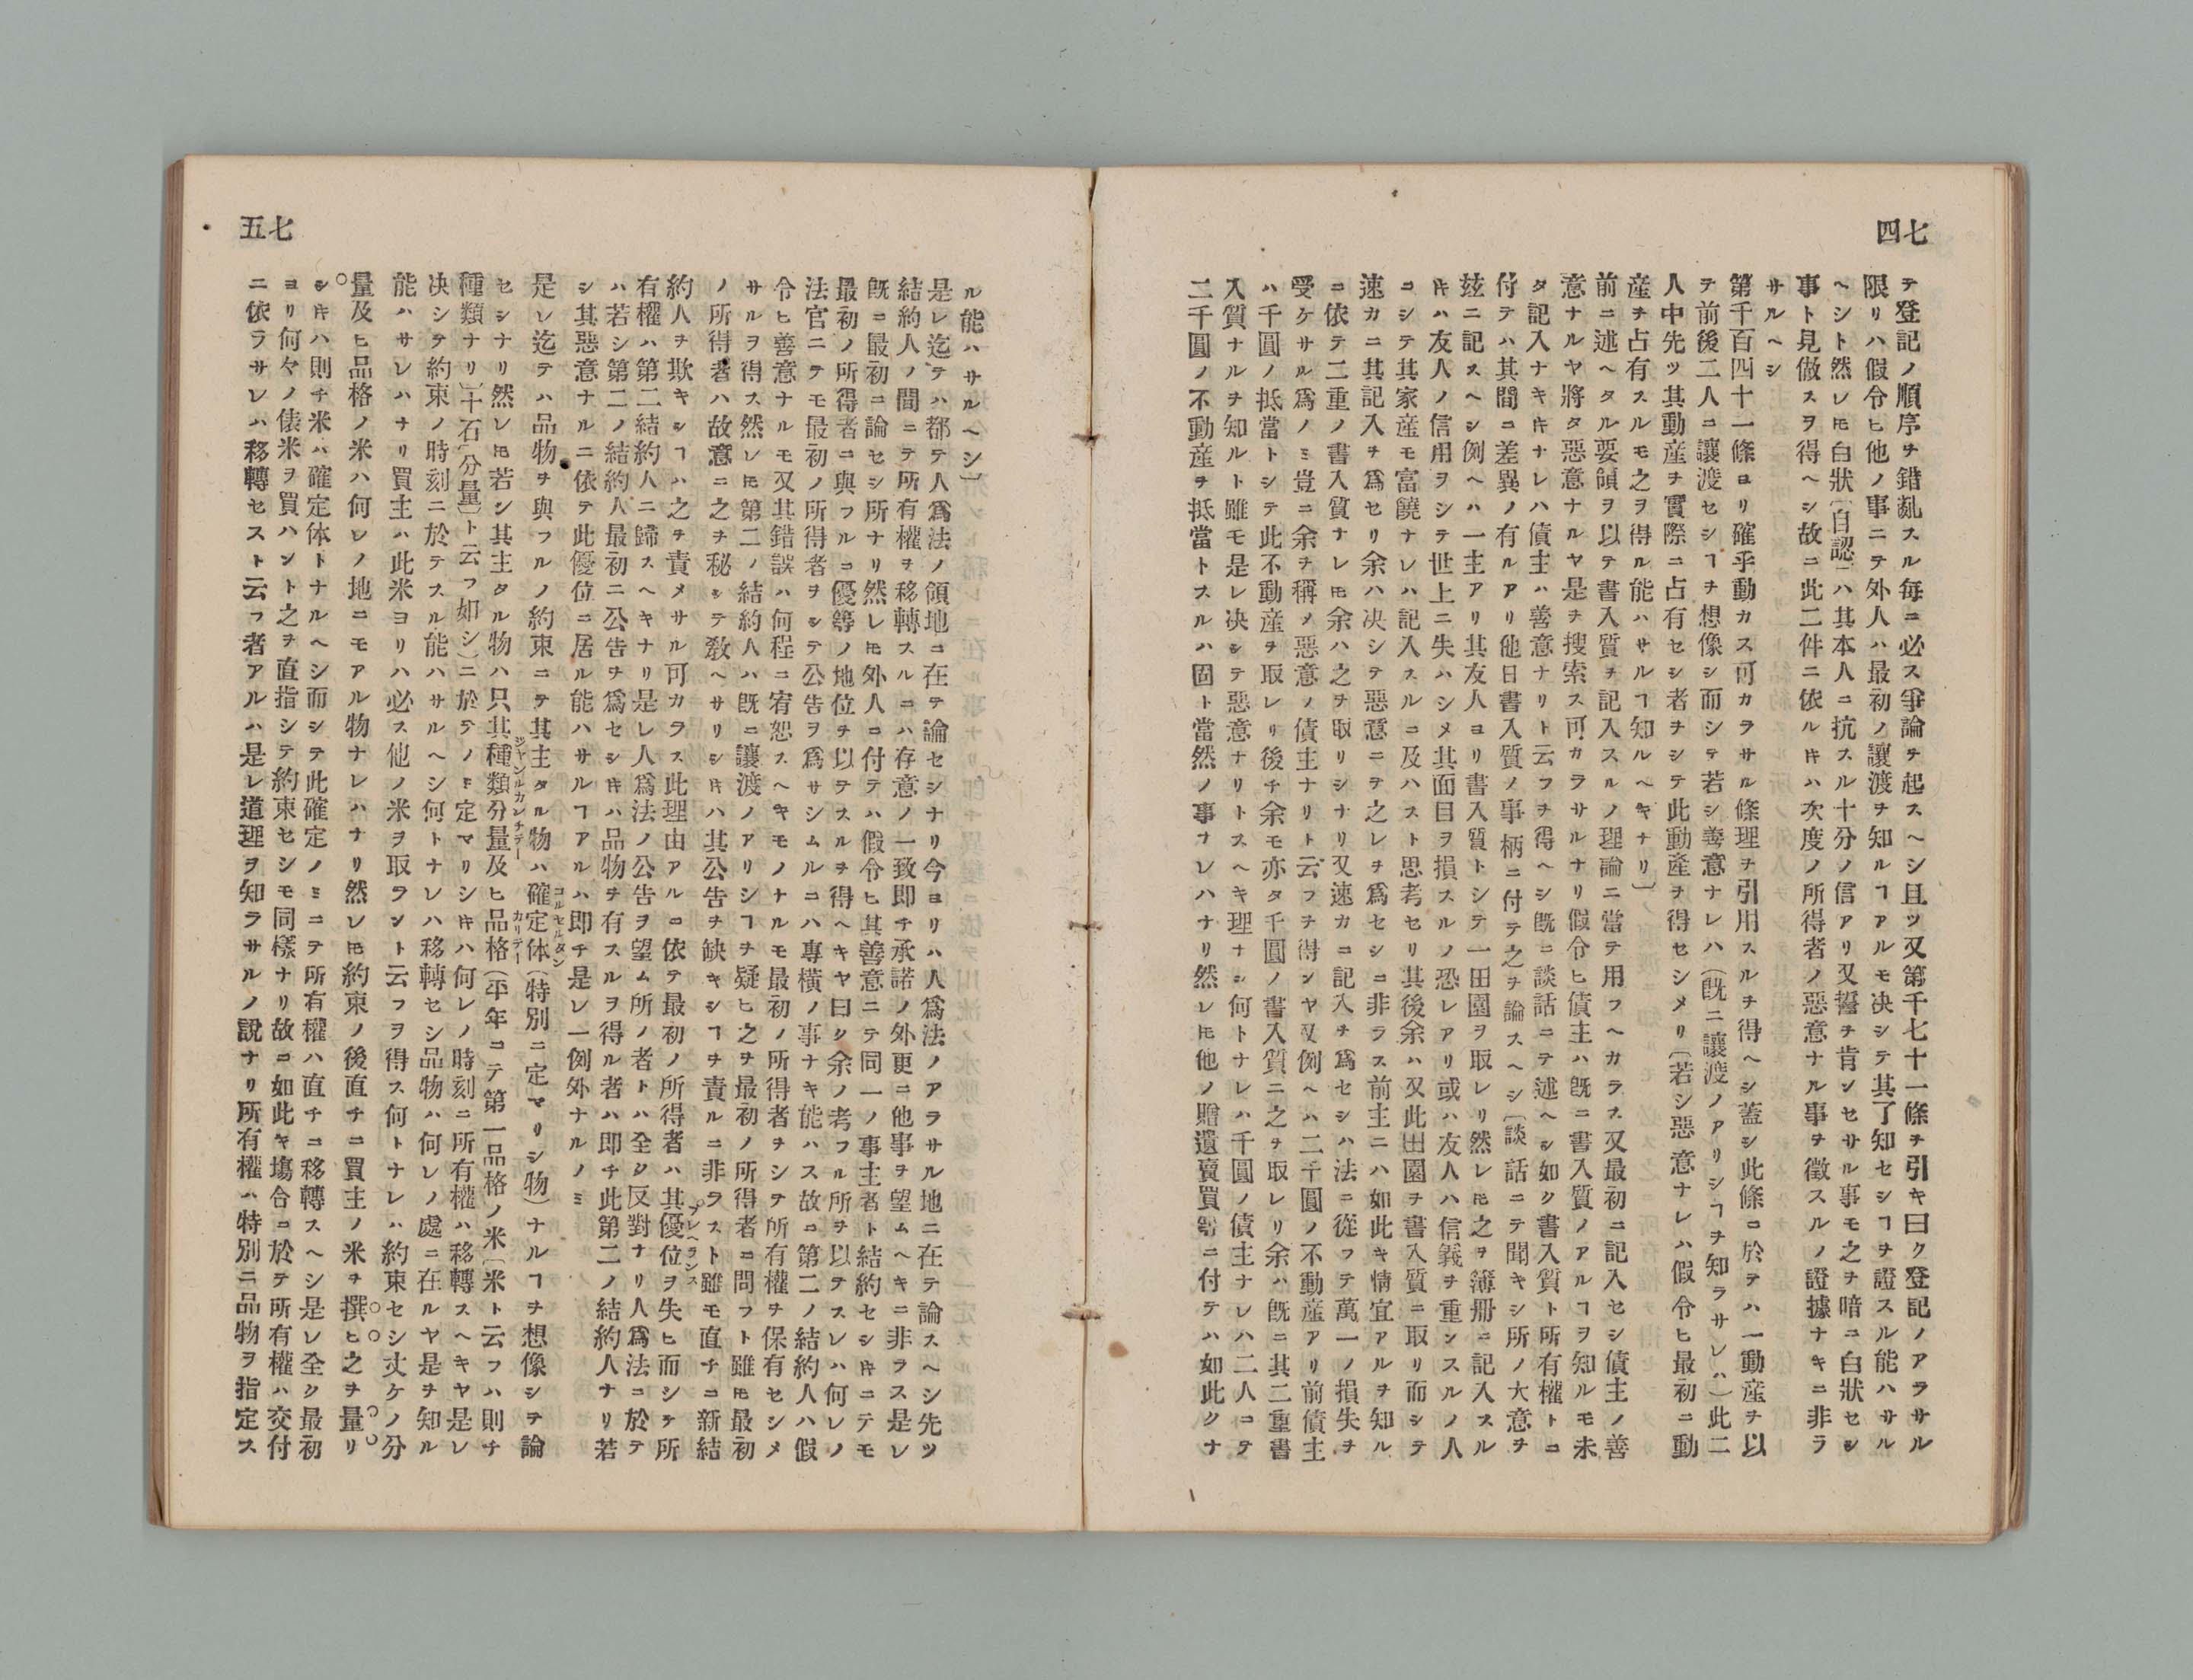 七四
テ登記ノ順序ヲ錯亂スル毎ニ必ス爭論ヲ起スヘシ且ツ又第千七十一條ヲ引キ曰ク登記ノアラサル
限リハ假令ヒ他ノ事ニテ外人ハ最初ノ讓渡ヲ知ルヿアルモ决シテ其了知セシヿヲ證スル能ハサル
ヘシト然レ𪜈白狀〔自認〕ハ其本人ニ抗スル十分ノ信アリ又誓ヲ肯ンセサル事モ之ヲ暗ニ白狀セシ
事ト見做スヲ得ヘシ故ニ此二件ニ依ルキハ次度ノ所得者ノ惡意ナル事ヲ徵スルノ證據ナキニ非ラ
サルヘシ
第千百四十一條ヨリ確乎動カス可カラサル條理ヲ引用スルヲ得ヘシ蓋シ此條ニ於テハ一動產ヲ以
テ前後二人ニ讓渡セシヿヲ想像シ而シテ若シ善意ナレハ（旣ニ讓渡ノアリシヿヲ知ラサレハ）此二
人中先ツ其動產ヲ實際ニ占有セシ者ヲシテ此動產ヲ得セシメリ〔若シ惡意ナレハ假令ヒ最初ニ動
產ヲ占有スルモ之ヲ得ル能ハサルヿ知ルヘキナリ〕
前ニ述ヘタル要領ヲ以テ書入質ヲ記入スルノ理論ニ當テ用フヘカラス又最初ニ記入セシ債主ノ善
意ナルヤ將タ惡意ナルヤ是ヲ搜索ス可カラサルナリ假令ヒ債主ハ旣ニ書入質ノアルヿヲ知ルモ未
タ記入ナキキナレハ債主ハ善意ナリト云フヲ得ヘシ旣ニ談話ニテ述ヘシ如ク書入質ト所有權トニ
付テハ其間ニ差異ノ有ルアリ他日書入質ノ事柄ニ付テ之ヲ論スヘシ〔談話ニテ聞キシ所ノ大意ヲ
玆ニ記スヘシ例ヘハ一主アリ其友人ヨリ書入質トシテ一田園ヲ取レリ然レ𪜈之ヲ簿册ニ記入スル
キハ友人ノ信用ヲシテ世上ニ失ハシメ其面目ヲ損スルノ恐レアリ或ハ友人ハ信義ヲ重ンスルノ人
ニシテ其家產モ富饒ナレハ記入スルニ及ハスト思考セリ其後余ハ又此田園ヲ書入質ニ取リ而シテ
速カニ其記入ヲ爲セリ余ハ决シテ惡意ニテ之レヲ爲セシニ非ラス前主ニハ如此キ情宜アルヲ知ル
ニ依テ二重ノ書入質ナレ𪜈余ハ之ヲ取リシナリ又速カニ記入ヲ爲セシハ法ニ從フテ萬一ノ損失ヲ
受ケサル爲ノミ豈ニ余ヲ稱メ惡意ノ債主ナリト云フヲ得ンヤ又例ヘハ二千圓ノ不動產アリ前債主
ハ千圓ノ抵當トシテ此不動產ヲ取レリ後チ余モ亦タ千圓ノ書入質ニ之ヲ取レリ余ハ旣ニ其二重書
入質ナルヲ知ルト雖モ是レ决シテ惡意ナリトスヘキ理ナシ何トナレハ千圓ノ債主ナレハ二人ニテ
二千圓ノ不動產ヲ抵當トスルハ固ト當然ノ事ナレハナリ然レ𪜈他ノ贈遺賣買等ニ付テハ如此クナ
七五
ル能ハサルヘシ〕
是レ迄テハ都テ人爲法ノ領地ニ在テ論セシナリ今ヨリハ人爲法ノアラサル地ニ在テ論スヘシ先ツ
結約人ノ間ニテ所有權ヲ移轉スルニハ存意ノ一致即チ承諾ノ外更ニ他事ヲ望ムヘキニ非ラス是レ
旣ニ最初ニ論セシ所ナリ然レ𪜈外人ニ付テハ假令ヒ其善意ニテ同一ノ事主者ト結約セシキニテモ
最初ノ所得者ニ與フルニ優等ノ地位ヲ以テスルヲ得ヘキヤ曰ク余ノ考フル所ヲ以テスレハ何レノ
法官ニテモ最初ノ所得者ヲシテ公告ヲ爲サシムルニハ專橫ノ事ナキ能ハス故ニ第二ノ結約人ハ假
令ヒ善意ナルモ又其錯誤ハ何程ニ宥恕スヘキモノナルモ最初ノ所得者ヲシテ所有權ヲ保有セシメ
サルヲ得ス然レ𪜈第二ノ結約人ハ旣ニ讓渡ノアリシヿヲ疑ヒ之ヲ最初ノ所得者ニ問フト雖𪜈最初
ノ所得者ハ故意ニ之ヲ秘シテ敎ヘサリシキハ其公告ヲ缺キシヿヲ責ルニ非ラスト雖モ直チニ新結
約人ヲ欺キシヿハ之ヲ責メサル可カラス此理由アルニ依テ最初ノ所得者ハ其優位ヲ失ヒ而シテ所
プレヘランス
有權ハ第二結約人ニ歸スヘキナリ是レ人爲法ノ公告ヲ望ム所ノ者トハ全ク反對ナリ人爲法ニ於テ
ハ若シ第二ノ結約人最初ニ公告ヲ爲セシキハ品物ヲ有スルヲ得ル者ハ即チ此第二ノ結約人ナリ若
シ其惡意ナルニ依テ此優位ニ居ル能ハサルヿアルハ即チ是レ一例外ナルノミ
是レ迄テハ品物ヲ與フルノ約束ニテ其主タル物ハ確定体（特別ニ定マリシ物）ナルヿヲ想像シテ論
コルセルタン
セシナリ然レ𪜈若シ其主タル物ハ只其種類分量及ヒ品格（平年ニテ第一品格ノ米〔米ト云フハ則チ
ジャンル カンチテー カリテー
種類ナリ〕十石〔分量〕ト云フ如シ）ニ於テノミ定マリシキハ何レノ時刻ニ所有權ハ移轉スヘキヤ是レ
决シテ約束ノ時刻ニ於テスル能ハサルヘシ何トナレハ移轉セシ品物ハ何レノ處ニ在ルヤ是ヲ知ル
能ハサレハナリ買主ハ此米ヨリハ必ス他ノ米ヲ取ラント云フヲ得ス何トナレハ約束セシ丈ケノ分
量及ヒ品格ノ米ハ何レノ地ニモアル物ナレハナリ然レ𪜈約束ノ後直チニ買主ノ米ヲ撰ヒ之ヲ量リ
シキハ則チ米ハ確定体トナルヘシ而シテ此確定ノミニテ所有權ハ直チニ移轉スヘシ是レ全ク最初
ヨリ何々ノ俵米ヲ買ハント之ヲ直指シテ約束セシモ同樣ナリ故ニ如此キ塲合ニ於テ所有權ハ交付
ニ依ラサレハ移轉セスト云フ者アルハ是レ道理ヲ知ラサルノ說ナリ所有權ハ特別ニ品物ヲ指定ス